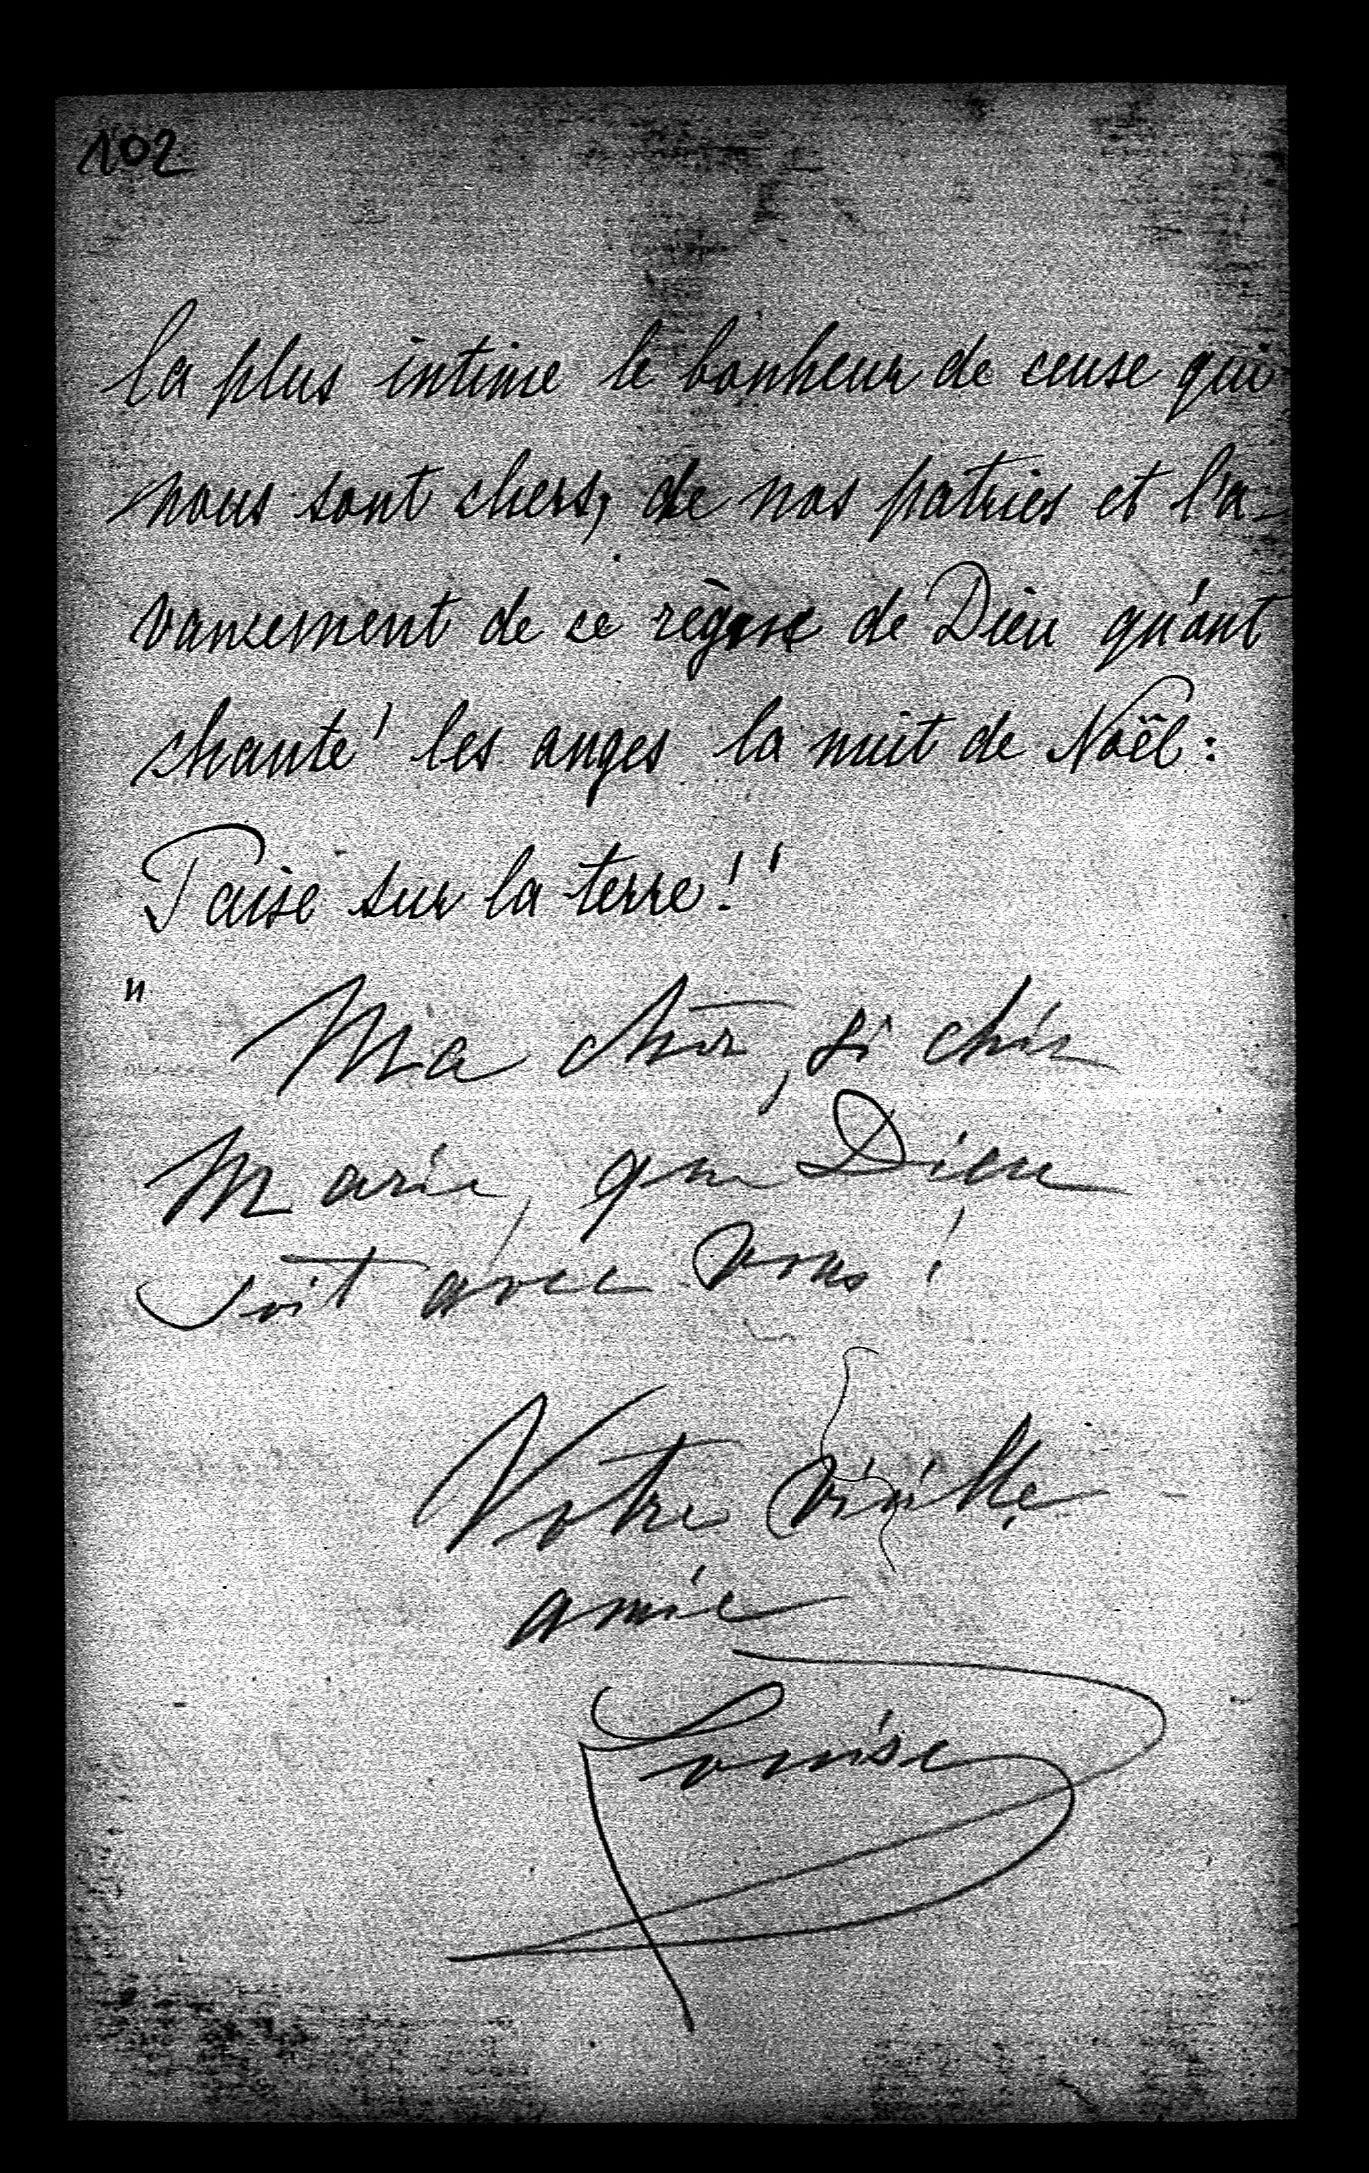 102
la plus intime le bonheur de ceux qui
nous sont chers, de nos patries et l'a-
vancement de ce règne de Dieu qu'ont
chanté les anges la nuit de Noël :
Paix sur la terre !'
" Ma chère, si chère
Marie, que Dieu
soit avec vous !
Votre vieille
amie
Louise